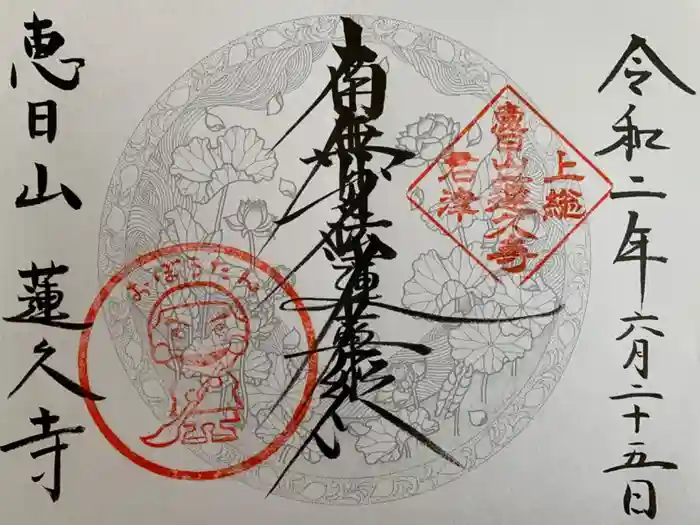 令和二年六月二十五日
上総
恵日山蓮久寺
君津
南無妙法蓮華経
恵日山 蓮久寺
おぼうたん